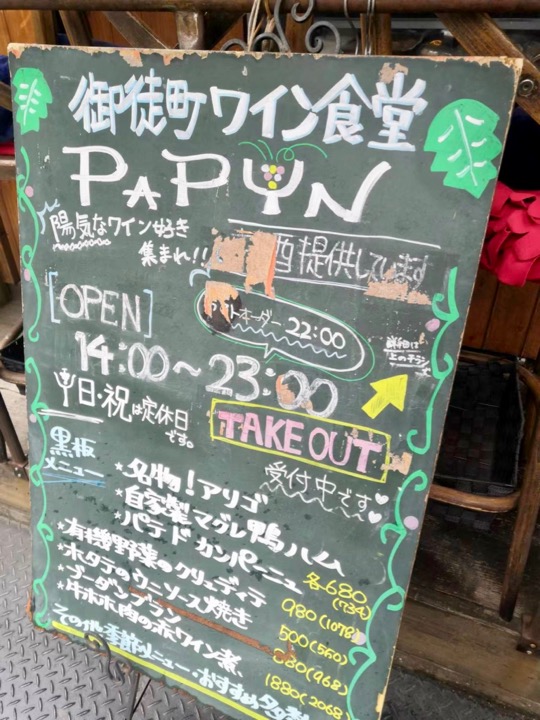 御徒町ワイン食堂
PAPYN
陽気なワイン好き
集まれ!!
酒提供しています
[OPEN]
ラストオーダー 22:00
14:00〜23:00
詳細は
上のチラシ
日・祝は定休日
です。
TAKE OUT
受付中です♡♡
黒板
メニュー
*名物!アリゴ
*自家製マグレ鴨ハム
*パテドカンパーニュ
*有機野菜のクリュディテ 各680(734)
*ホタテのウニソース焼き 980(1078)
*ブーダンブラン 500(550)
*牛ホホ肉の赤ワイン煮 880(968)
1880(2068)
その他季節メニュー・おすすめ多数